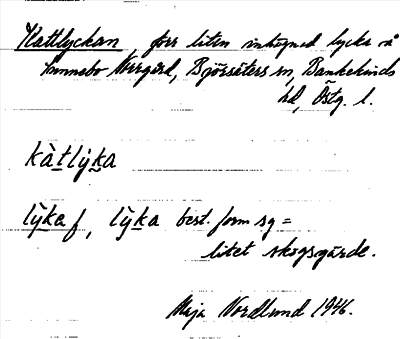 Kattlyckan, förr liten inhägnad lycka på
Sunnebo Norrgård, Björsäters sn, Bankekinds
hd, Östg. l.
kàtlýka
lỳka f, lỳka best. form sg =
litet skogsgärde.
Maja Nordlund 1946.